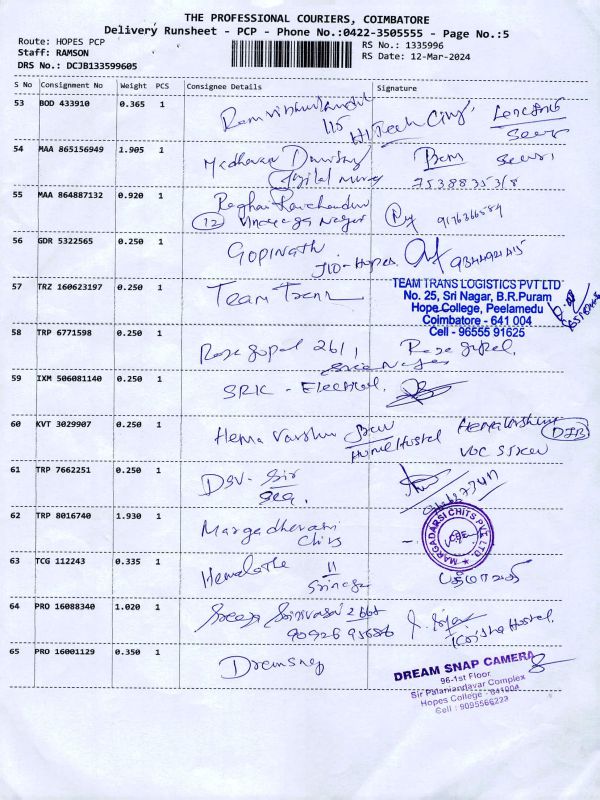 THE PROFESSIONAL COURIERS, COIMBATORE
Delivery Runsheet - PCP - Phone No.:0422-3505555 - Page No.:5
Route: HOPES PCP
RS No.: 1335996
Staff: RAMSON
RS Date: 12-Mar-2024
DRS No.: DCJB133599605
S No Consignment No Weight PCS Consignee Details Signature
53 BOD 433910 0.365 1
115 Hi Tech City
54 MAA 865156949 1.905 1 Madhavan
7538835318
55 MAA 864887132 0.920 1
12 Vinayaga Nagar 9176366584
56 GDR 5322565 0.250 1 Gopinath
Jio-Hopes
57 TRZ 160623197 0.250 1 Team Trans
TEAM TRANS LOGISTICS PVT LTD
No. 25, Sri Nagar, B.R.Puram
Hope College, Peelamedu
Coimbatore - 641 004
Cell - 96555 91625
58 TRP 6771598 0.250 1 Raja gopal 26/1 Raja gopal.
59 IXM 506081140 0.250 1 SRK - Electrical.
60 KVT 3029907 0.250 1 Hema Varshni
Home Hostel
61 TRP 7662251 0.250 1 DSV - Sir
62 TRP 8016740 1.930 1 Margadharsi
Chits
MARGADARSI CHITS PVT. LTD.
63 TCG 112243 0.335 1 Hemalatha 11
Srinagar
பத்மாவதி
64 PRO 16088340 1.020 1 Sreeja Srinivasan
Krisha Hostel.
65 PRO 16001129 0.350 1 Dremsnap
DREAM SNAP CAMERA
96-1st Floor
Sir Palaniandavar Complex
Hopes College - 641004
Cell : 9095566223